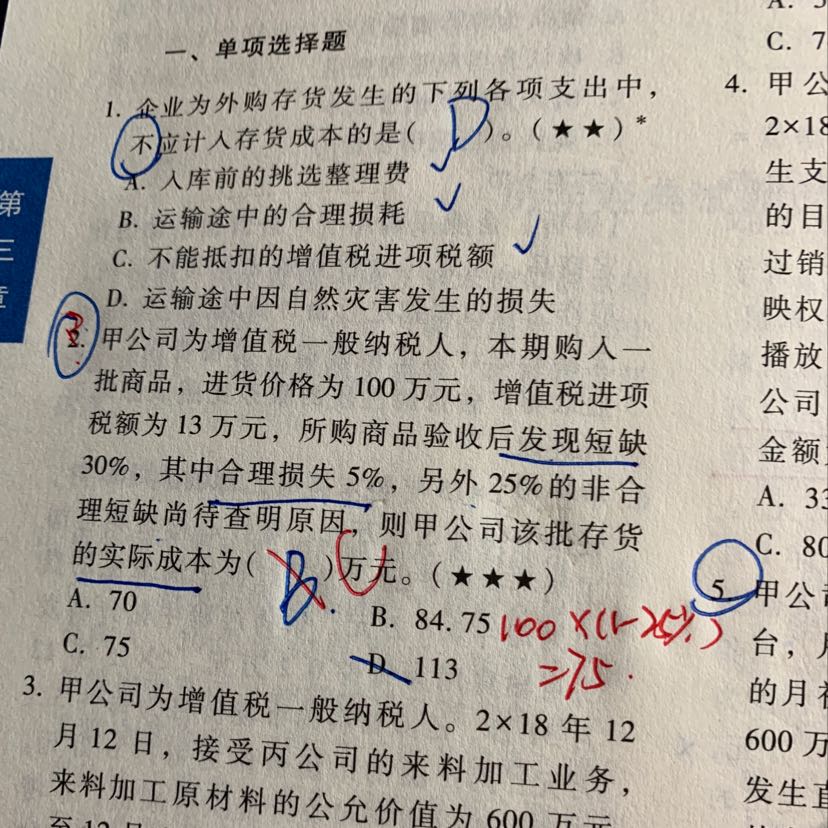 一、单项选择题
1. 企业为外购存货发生的下列各项支出中，
不应计入存货成本的是( D )。(★★)*
A. 入库前的挑选整理费 ✓
B. 运输途中的合理损耗 ✓
C. 不能抵扣的增值税进项税额 ✓
D. 运输途中因自然灾害发生的损失
2. 甲公司为增值税一般纳税人，本期购入一
批商品，进货价格为 100 万元，增值税进项
税额为 13 万元，所购商品验收后发现短缺
30%，其中合理损失 5%，另外 25% 的非合
理短缺尚待查明原因，则甲公司该批存货
的实际成本为( B )万元。(★★★)
C
A. 70
B. 84.75
C. 75
D. 113
100×(1-25%)
=75.
3. 甲公司为增值税一般纳税人。2×18 年 12
月 12 日，接受丙公司的来料加工业务，
来料加工原材料的公允价值为 600 万元
至 12 月
第
三
章
C. 7
4. 甲公
2×18
生支
的目
过销
映权
播放
公司
金额
A. 33
C. 80
5. 甲公司
台，
的月初
600 万
发生直